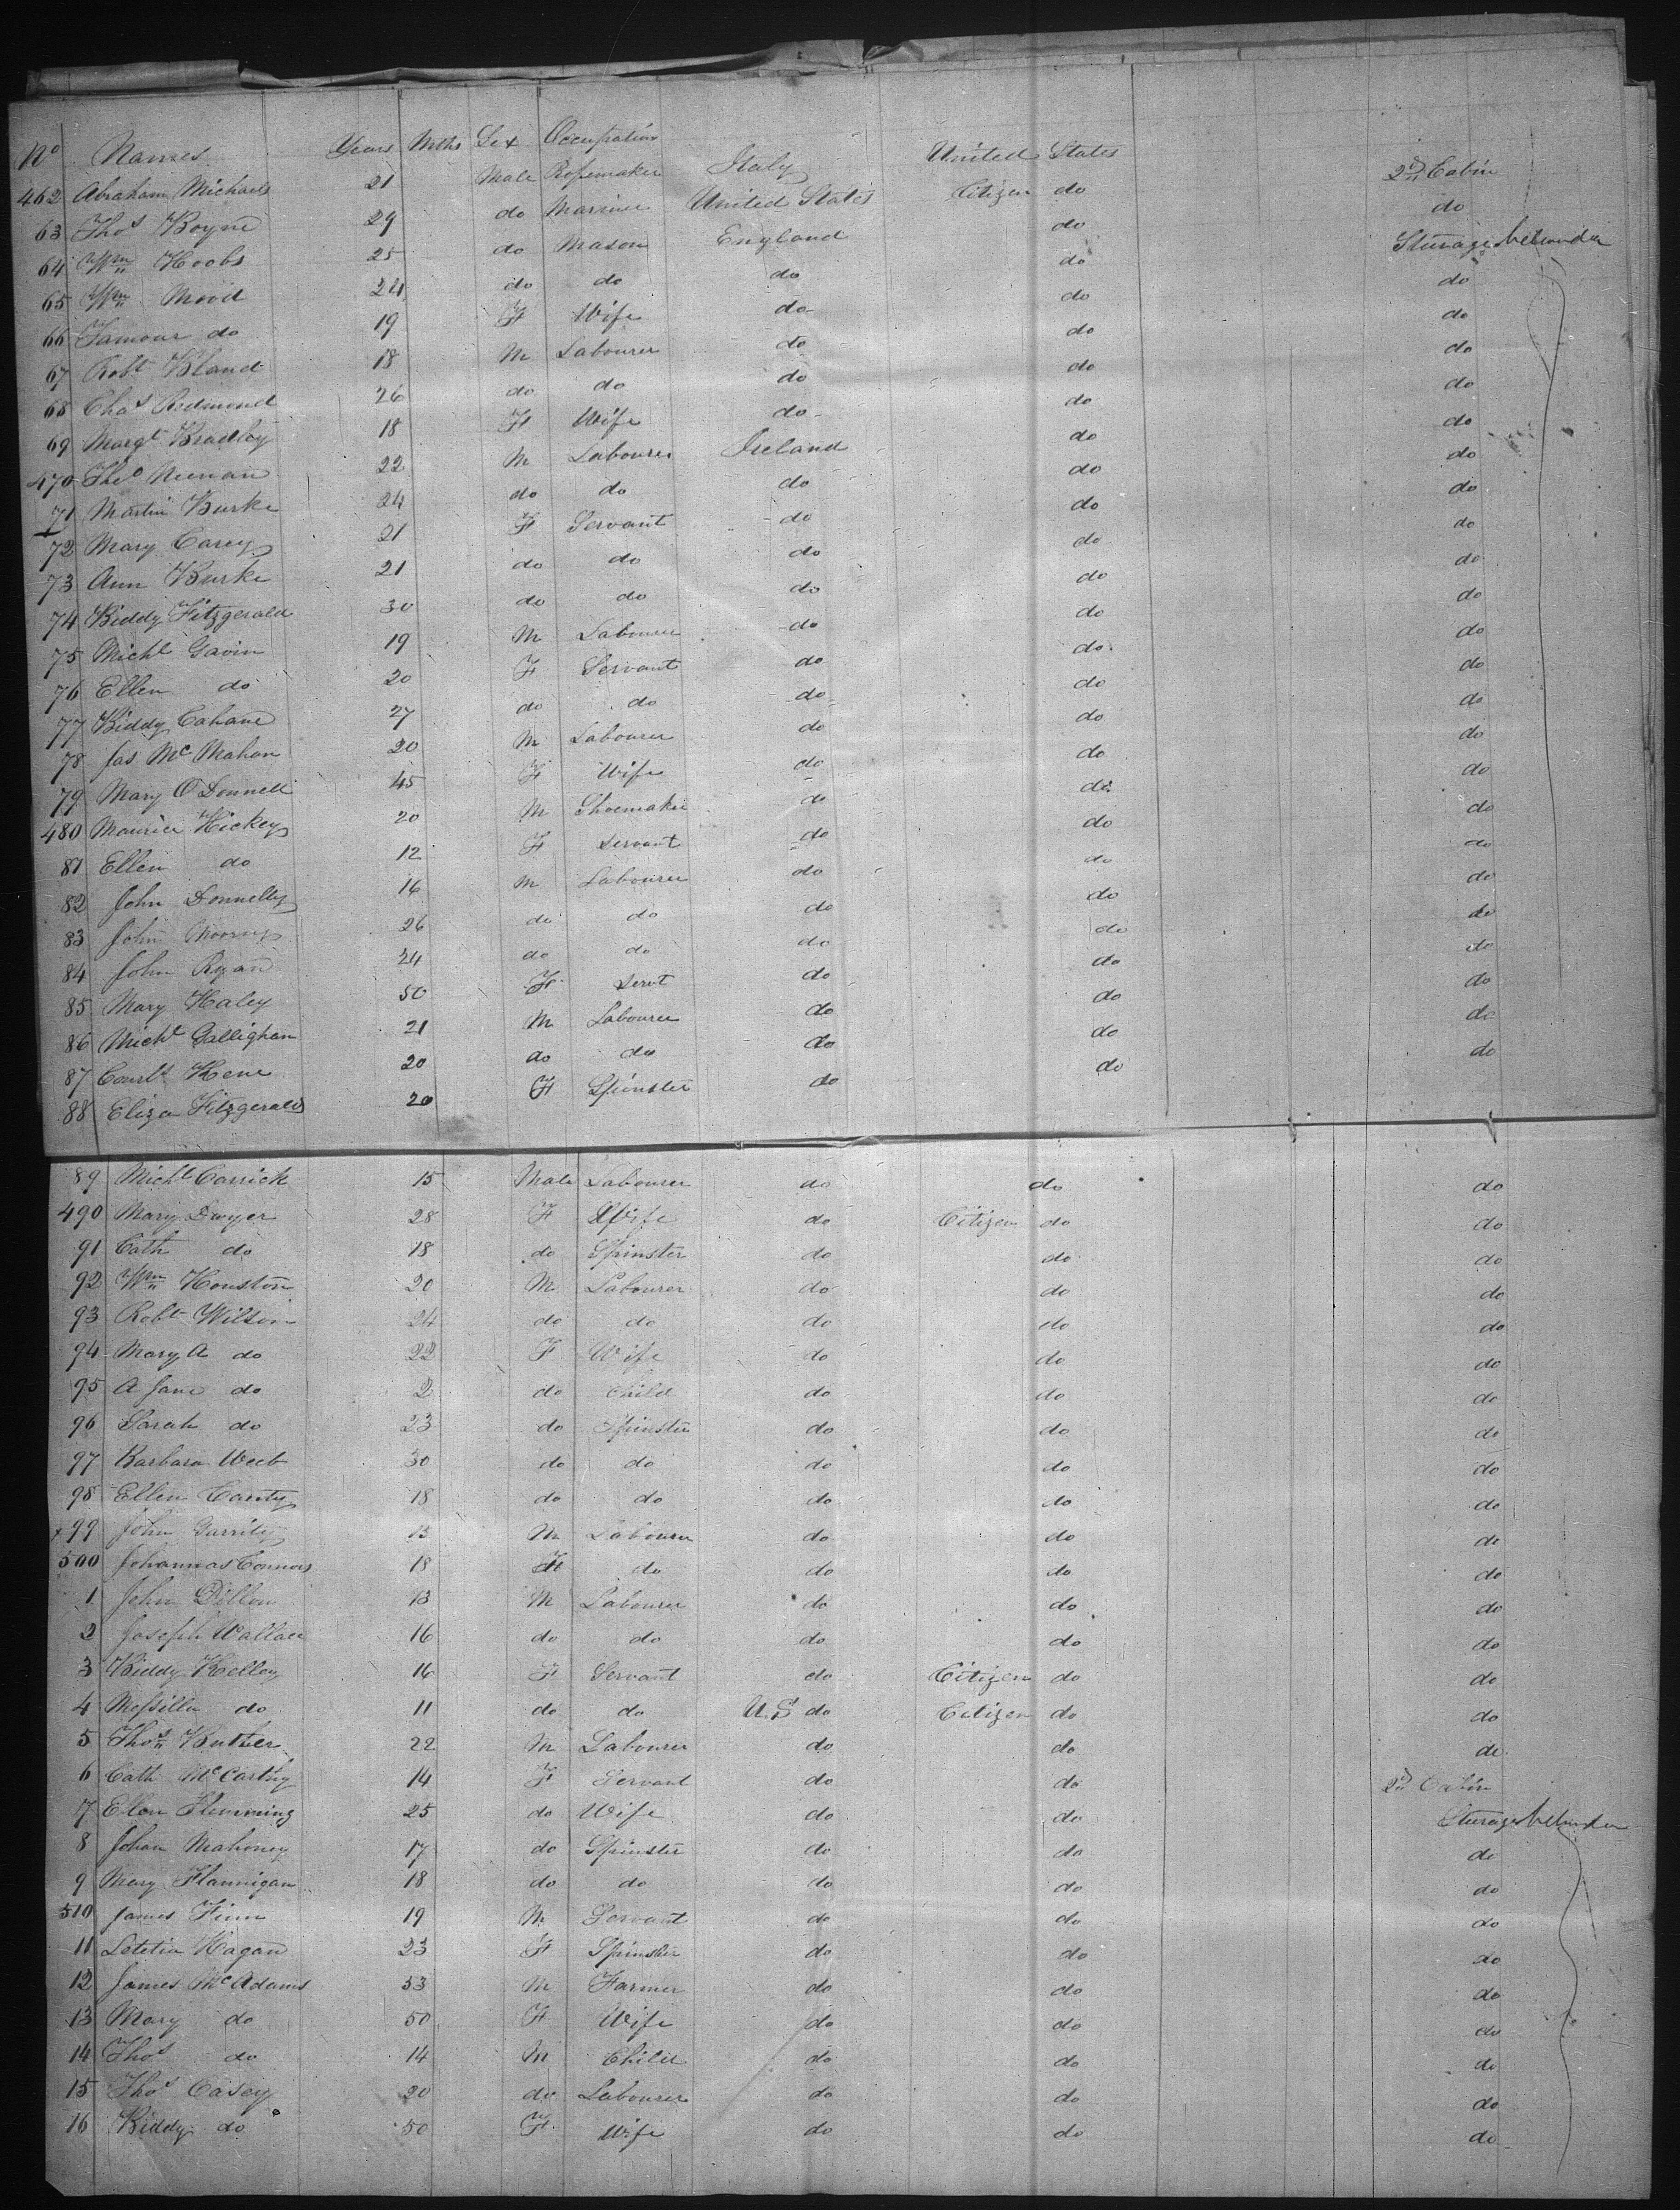 No Names Years Mths Sex Occupation
462 Abraham Michaels 21 Male Ropemaker Italy United States 2d Cabin
63 Thos Boyne 29 do Mariner United States Citizen do do
64 Wm Hoobs 25 do Mason England do Sturage between
65 Wm Mood 24 do do do do do
66 do 19 F Wife do do do
67 Robt Bland 18 M Labourer do do do
68 Chas Redmond 26 do do do do do
69 Margt Bradley 18 F Wife do do do
470 Thos Neenan 22 M Labourer Ireland do do
71 Martin Burke 24 do do do do do
72 Mary Carey 21 F Servant do do do
73 Ann Burke 21 do do do do do
74 Biddy Fitzgerald 30 do do do do do
75 Michl Gavin 19 M Labourer do do do
76 Ellen do 20 F Servant do do do
77 Biddy Cahane 27 do do do do do
78 Jas McMahon 20 M Labourer do do do
79 Mary O Donnell 45 F Wife do do do
480 Maurice Hickey 20 M Shoemaker do do do
81 Ellen do 12 F Servant do do do
82 John Donnelly 16 M Labourer do do do
83 John 26 do do do do do
84 John Ryan 24 do do do do do
85 Mary Haley 50 F Servt do do do
86 Michl Galligham 21 M Labourer do do do
87 Kene 20 do do do do do
88 Eliza Fitzgerald 20 F Spinster do do do
89 Michl Carrick 15 Male Labourer do do do
490 Mary Dwyer 28 F Wife do Citizen do do
91 Cath do 18 do Spinster do do do
92 Wm Houston 20 M Labourer do do do
93 Robt Wilson 24 do do do do do
94 Mary A do 22 F Wife do do do
95 A Jane do 2 do Child do do do
96 Sarah do 23 do Spinster do do do
97 Barbara Weeb 30 do do do do do
98 Ellen Canty 18 do do do do do
99 John Garrity 15 M Labourer do do do
500 Johannas Connors 18 F do do do do
1 John Dillon 13 M Labourer do do do
2 Joseph Wallace 16 do do do do do
3 Biddy Kelley 16 F Servant do Citizen do do
4 do 11 do do U.S do Citizen do do
5 Thos Butler 22 M Labourer do do do
6 Cath McCarthy 14 F Servant do do 2d Cabin
7 Ellen Flemming 25 do Wife do do Sturage between
8 Johan Mahoney 17 do Spinster do do do
9 Mary Flannigan 18 do do do do do
510 James Finn 19 M Servant do do do
11 Letetia Hagan 23 F Spinster do do do
12 James McAdams 53 M Farmer do do do
13 Mary do 50 F Wife do do do
14 Thos do 14 M Child do do do
15 Thos Casey 20 do Labourer do do do
16 Biddy do 50 F Wife do do do